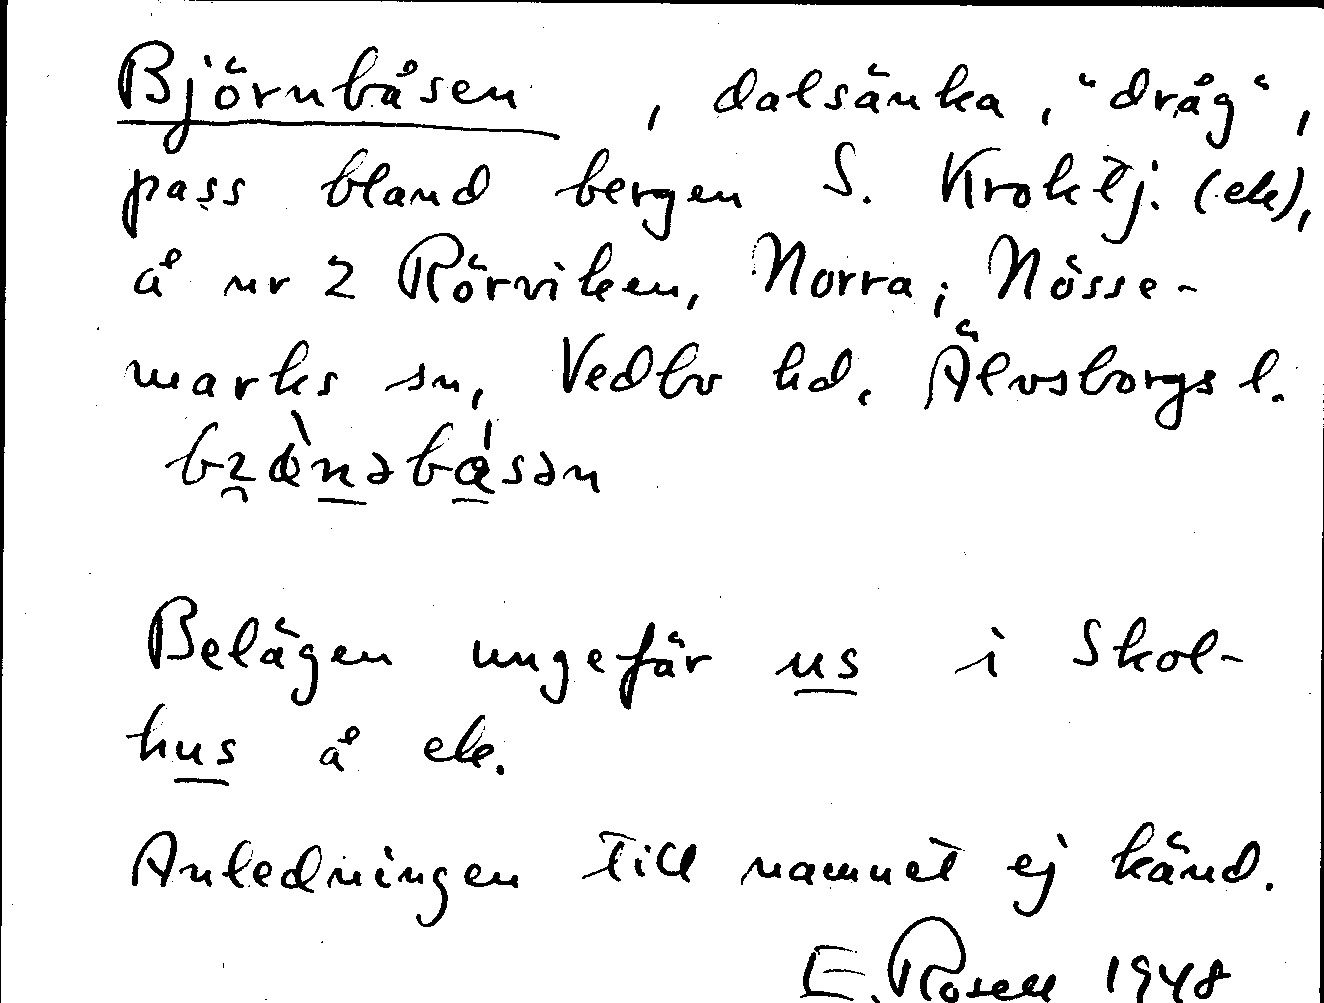 Björnbåsen, dalsänka, "dråg",
pass bland bergen S. Kroktj. (ek),
å nr 2 Rörviken, Norra; Nösse-
marks sn, Vedbo hd, Älvsborgs l.
Belägen ungefär us i Skol-
hus å ek.
Anledningen till namnet ej känd.
E. Rosell 1948